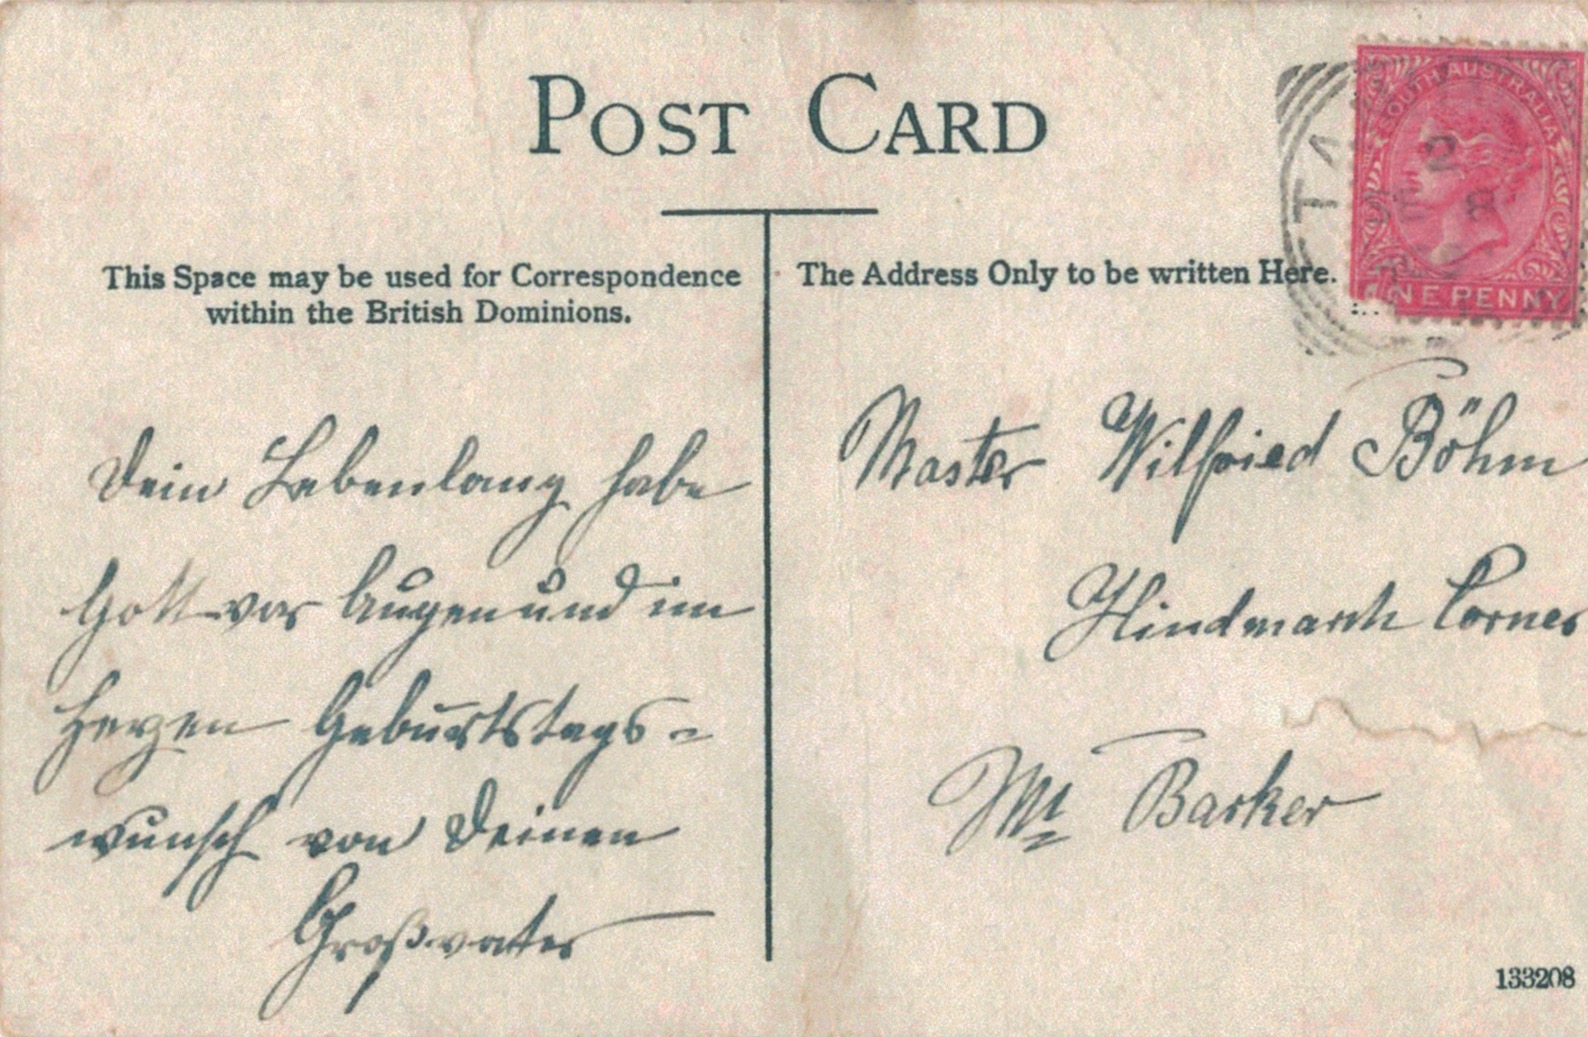 POST CARD
This Space may be used for Correspondence
within the British Dominions.
The Address Only to be written Here.
SOUTH AUSTRALIA
NE PENNY
TA
Dein Lebenlang habe
Gott vor Augen und im
Herzen Geburtstags=
wunsch von Deinen
Großvater
Master Wilfried Böhm
Hindmarsh Corner
Mt Barker
133208